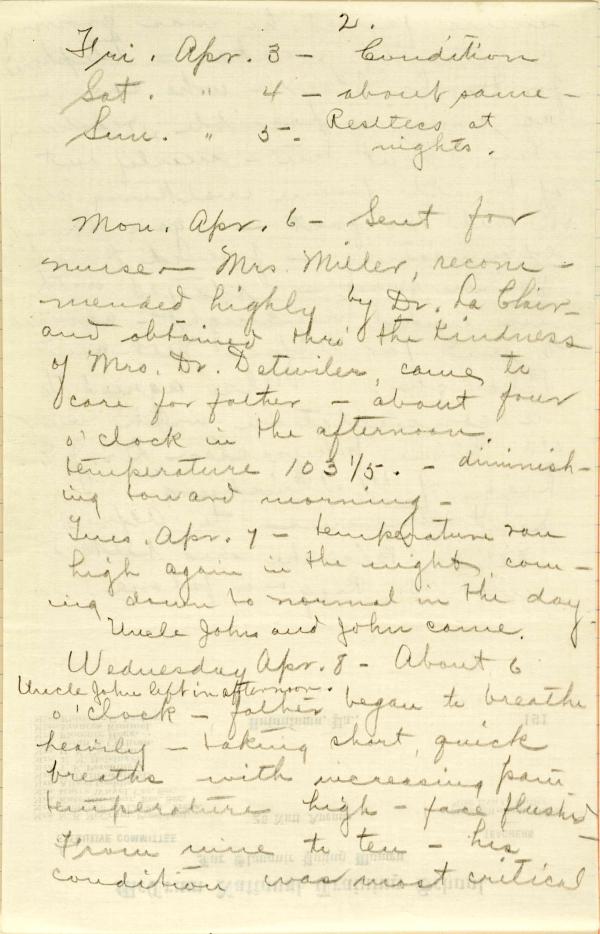 2.
Fri. Apr. 3 - Condition
Sat. " 4 - about same -
Sun. " 5 - Restless at
nights.
Mon. Apr. 6 - Sent for
nurse - Mrs. Miller, recom-
mended highly by Dr. La Clair -
and obtained thro' the kindness
of Mrs. Dr. Detwiler, came to
care for father - about four
o'clock in the afternoon.
temperature 103 1/5. - diminish-
ing toward morning -
Tues. Apr. 7 - temperature ran
high again in the night, com-
ing down to normal in the day.
Uncle John and John came.
Wednesday Apr. 8 - About 6
Uncle John left in afternoon.
o'clock - father began to breathe
heavily - taking short, quick
breaths with increasing pain
temperature high - face flushed -
From nine to ten - his
condition was most critical